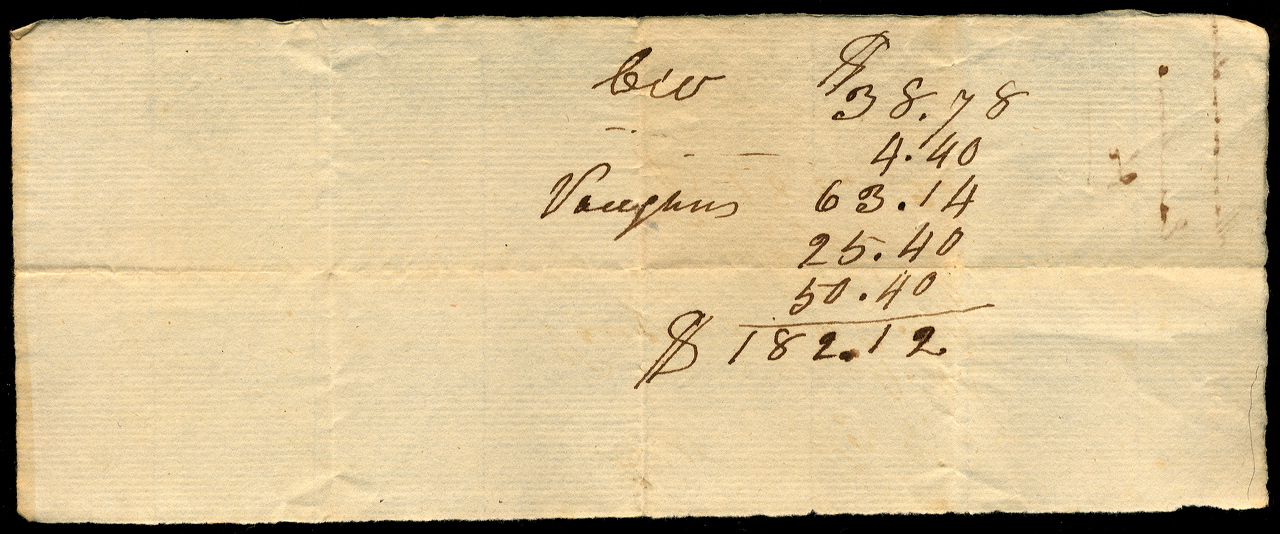 $
38.78
4.40
Vaughns 63.14
25.40
50.40
$ 182.12